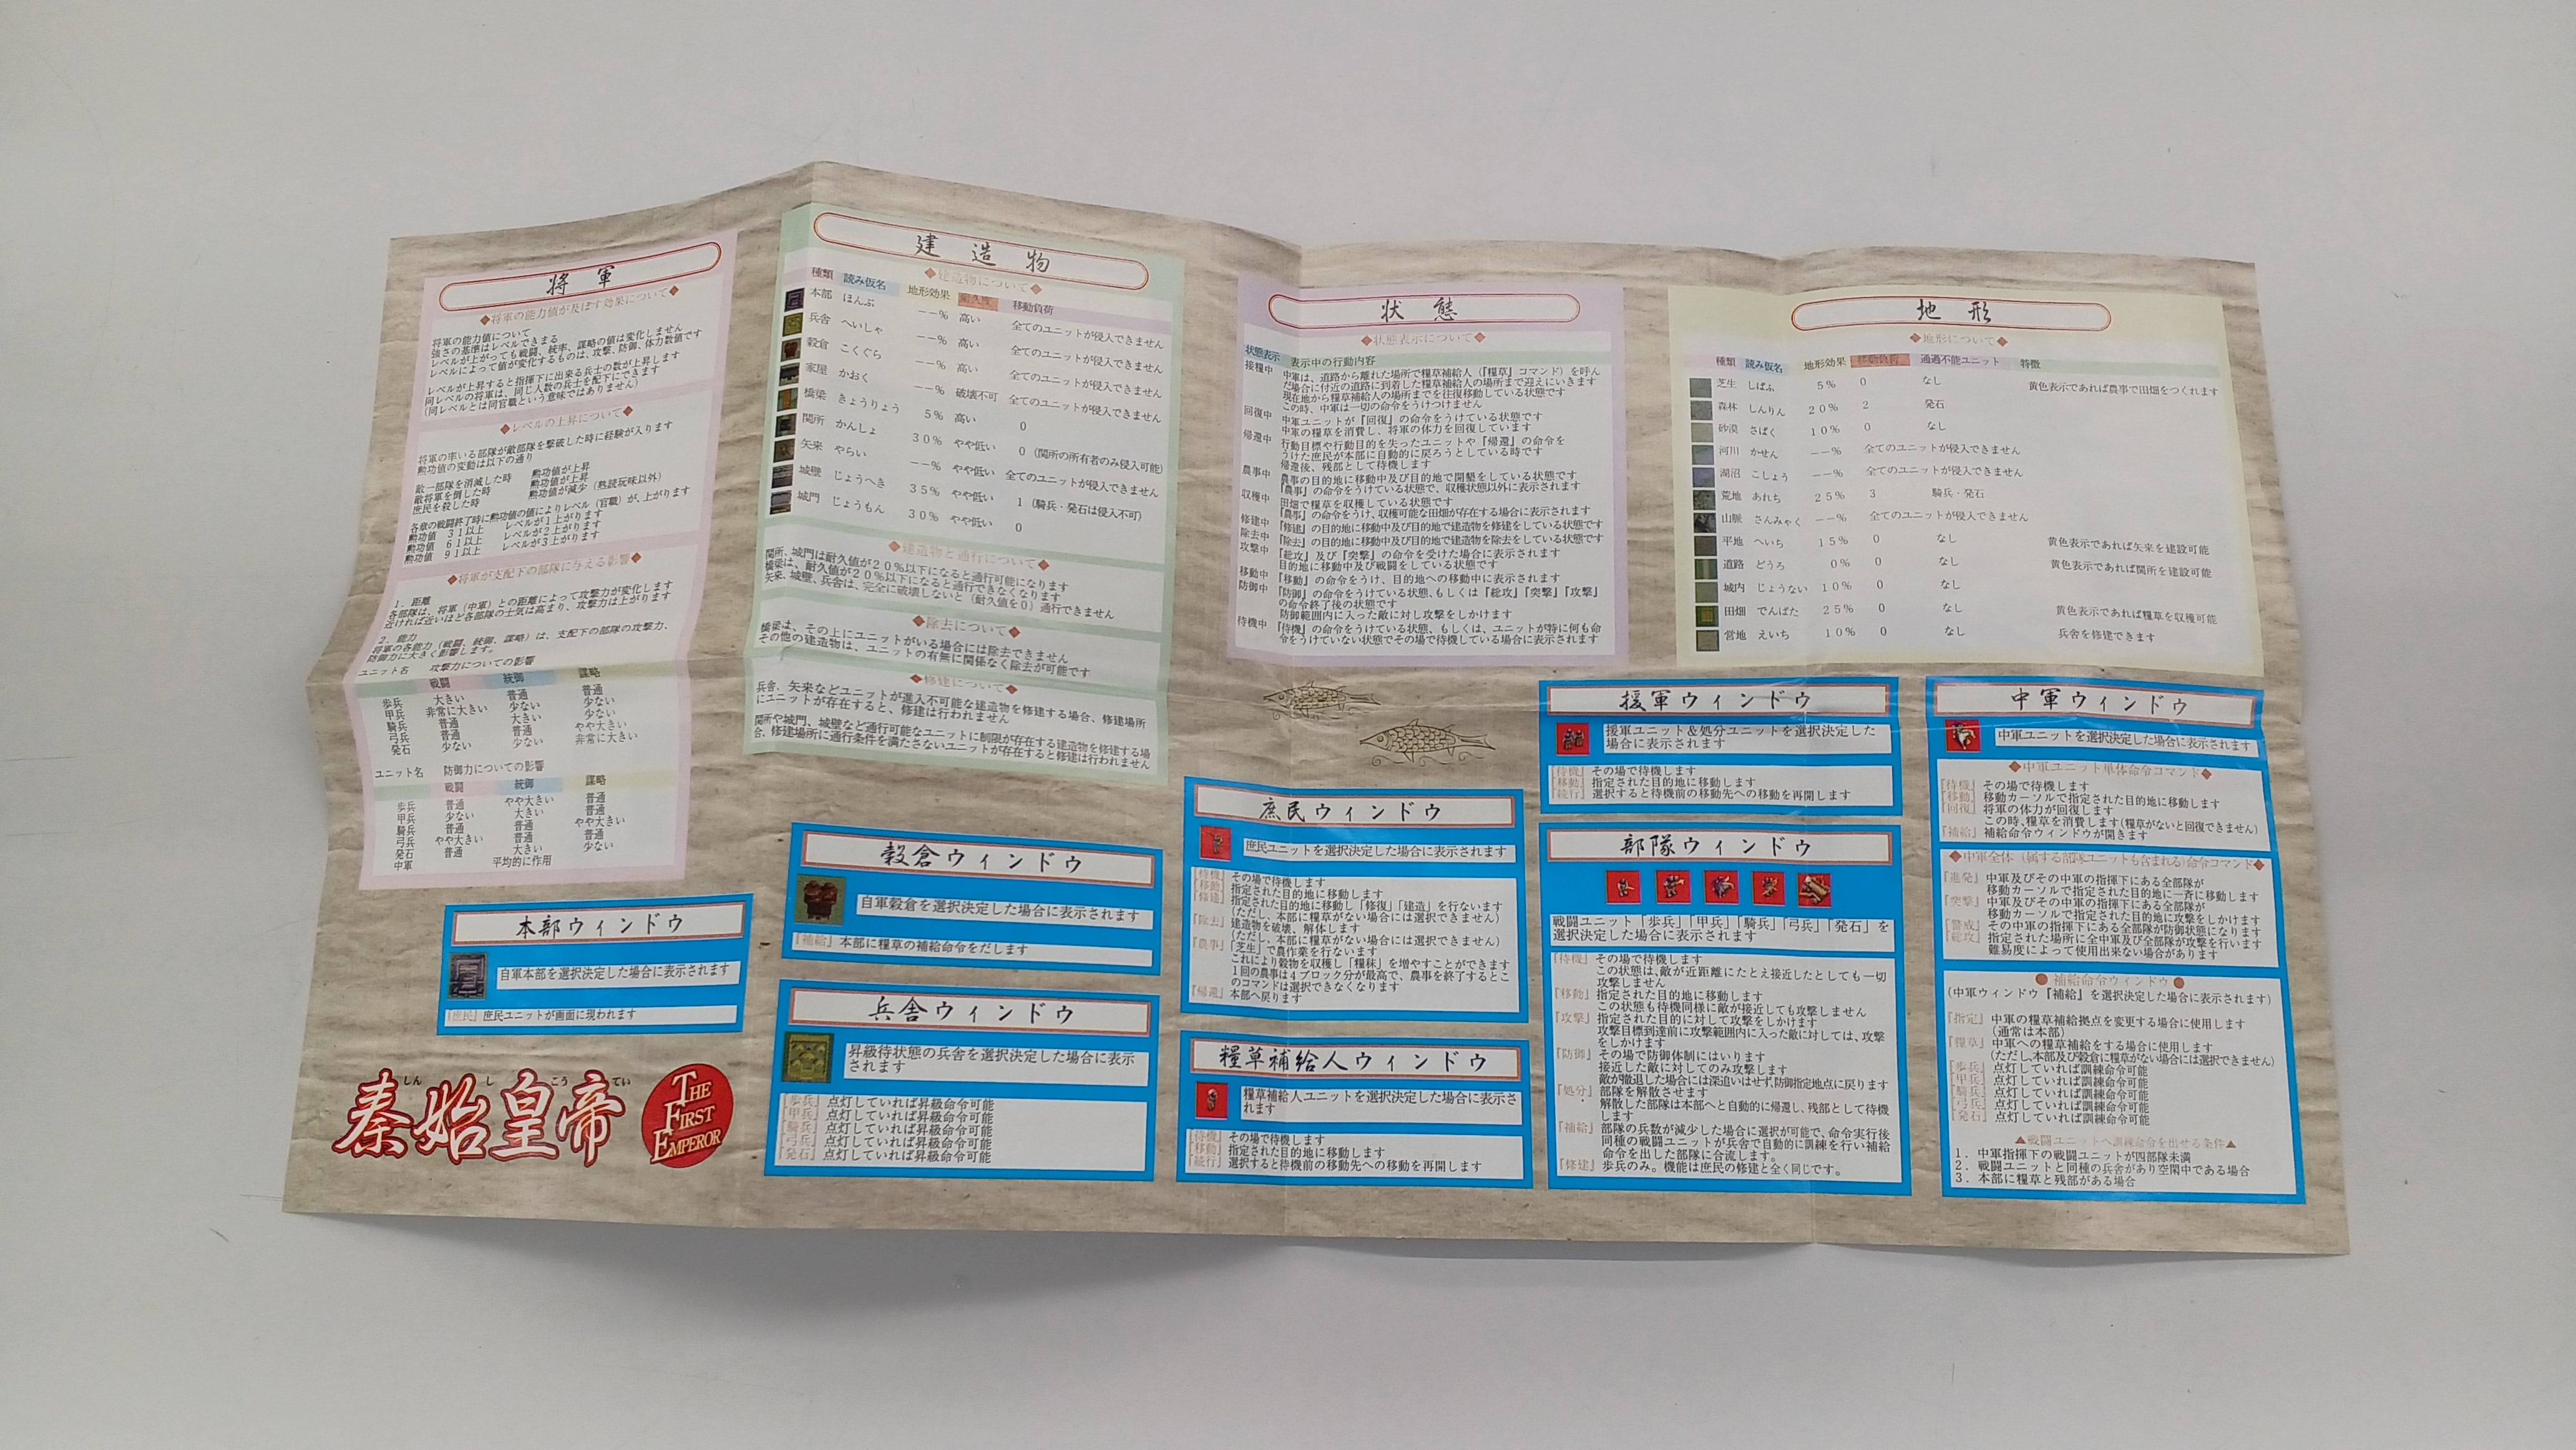 将軍
◆将軍の能力値が及ぼす効果について◆
将軍の能力値について
強さの基準はレベルできまる
レベルが上がっても戦闘、統率、謀略の値は変化しません
レベルによって値が変化するものは、攻撃、防御、体力数値です
レベルが上昇すると指揮下に出来る兵士の数が上昇します
同レベルの将軍は、同じ人数の兵士を配下にできます
(同レベルとは同官職という意味ではありません)
◆レベルの上昇について◆
将軍の率いる部隊が敵部隊を撃破した時に経験が入ります
勲功値の変動は以下の通り
敵一部隊を消滅した時 勲功値が上昇
敵将軍を倒した時 勲功値が上昇
庶民を殺した時 勲功値が減少(熟読玩味以外)
各章の戦闘終了時に勲功値の値によりレベル(官職)が、上がります
勲功値 31以上 レベルが1上がります
勲功値 61以上 レベルが2上がります
勲功値 91以上 レベルが3上がります
◆将軍が支配下の部隊に与える影響◆
1.距離
各部隊は、将軍(中軍)との距離によって攻撃力が変化します
近ければ近いほど各部隊の士気は高まり、攻撃力は上がります
2.能力
将軍の各能力(戦闘、統御、謀略)は、支配下の部隊の攻撃力、
防御力に大きく影響します。
ユニット名 攻撃力についての影響
戦闘 統御 謀略
歩兵 大きい 普通 普通
甲兵 非常に大きい 少ない 少ない
騎兵 普通 大きい 少ない
弓兵 普通 普通 やや大きい
発石 少ない 少ない 非常に大きい
ユニット名 防御力についての影響
戦闘 統御 謀略
歩兵 普通 やや大きい 普通
甲兵 少ない 大きい 普通
騎兵 普通 普通 やや大きい
弓兵 やや大きい 普通 普通
発石 普通 大きい 少ない
中軍 平均的に作用
建造物
◆建造物について◆
種類 読み仮名 地形効果 耐久度 移動負荷
本部 ほんぶ --% 高い 全てのユニットが侵入できません
兵舎 へいしゃ --% 高い 全てのユニットが侵入できません
穀倉 こくぐら --% 高い 全てのユニットが侵入できません
家屋 かおく --% 破壊不可 全てのユニットが侵入できません
橋梁 きょうりょう 5% 高い 0
関所 かんしょ 30% やや低い 0(関所の所有者のみ侵入可能)
矢来 やらい --% やや低い 全てのユニットが侵入できません
城壁 じょうへき 35% やや低い 1(騎兵・発石は侵入不可)
城門 じょうもん 30% やや低い 0
◆建造物と通行について◆
関所、城門は耐久値が20%以下になると通行可能になります
橋梁は、耐久値が20%以下になると通行できなくなります
矢来、城壁、兵舎は、完全に破壊しないと(耐久値を0)通行できません
◆除去について◆
橋梁は、その上にユニットがいる場合には除去できません
その他の建造物は、ユニットの有無に関係なく除去が可能です
◆修建について◆
兵舎、矢来などユニットが進入不可能な建造物を修建する場合、修建場所
にユニットが存在すると、修建は行われません
関所や城門、城壁など通行可能なユニットに制限が存在する建造物を修建する場
合、修建場所に通行条件を満たさないユニットが存在すると修建は行われません
状態
◆状態表示について◆
状態表示 表示中の行動内容
接糧中 中軍は、道路から離れた場所で糧草補給人(『糧草』コマンド)を呼ん
だ場合に付近の道路に到着した糧草補給人の場所まで迎えにいきます
現在地から糧草補給人の場所までを往復移動している状態です
この時、中軍は一切の命令をうけつけません
回復中 中軍ユニットが『回復』の命令をうけている状態です
中軍の糧草を消費し、将軍の体力を回復しています
帰還中 行動目標や行動目的を失ったユニットや『帰還』の命令を
うけた庶民が本部に自動的に戻ろうとしている時です
帰還後、残部として待機します
農事中 農事の目的地に移動中及び目的地で開墾をしている状態です
『農事』の命令をうけている状態で、収穫状態以外に表示されます
収穫中 田畑で糧草を収穫している状態です
『農事』の命令をうけ、収穫可能な田畑が存在する場合に表示されます
修建中 『修建』の目的地に移動中及び目的地で建造物を修建をしている状態です
除去中 『除去』の目的地に移動中及び目的地で建造物を除去をしている状態です
攻撃中 『総攻』及び『突撃』の命令を受けた場合に表示されます
目的地に移動中及び戦闘をしている状態です
移動中 『移動』の命令をうけ、目的地への移動中に表示されます
防御中 『防御』の命令をうけている状態、もしくは『総攻』『突撃』『攻撃』
の命令終了後の状態です
防御範囲内に入った敵に対し攻撃をしかけます
待機中 『待機』の命令をうけている状態、もしくは、ユニットが特に何も命
令をうけていない状態でその場で待機している場合に表示されます
地形
◆地形について◆
種類 読み仮名 地形効果 移動負荷 通過不能ユニット 特徴
芝生 しばふ 5% 0 なし 黄色表示であれば農事で田畑をつくれます
森林 しんりん 20% 2 発石
砂漠 さばく 10% 0 なし
河川 かせん --% 全てのユニットが侵入できません
湖沼 こしょう --% 全てのユニットが侵入できません
荒地 あれち 25% 3 騎兵・発石
山脈 さんみゃく --% 全てのユニットが侵入できません
平地 へいち 15% 0 なし 黄色表示であれば矢来を建設可能
道路 どうろ 0% 0 なし 黄色表示であれば関所を建設可能
城内 じょうない 10% 0 なし
田畑 でんぱた 25% 0 なし 黄色表示であれば糧草を収穫可能
営地 えいち 10% 0 なし 兵舎を修建できます
本部ウィンドウ
自軍本部を選択決定した場合に表示されます
『庶民』庶民ユニットが画面に現われます
秦始皇帝
しんしこうてい
THE FIRST EMPEROR
穀倉ウィンドウ
自軍穀倉を選択決定した場合に表示されます
『補給』本部に糧草の補給命令をだします
兵舎ウィンドウ
昇級待状態の兵舎を選択決定した場合に表示
されます
『歩兵』点灯していれば昇級命令可能
『甲兵』点灯していれば昇級命令可能
『騎兵』点灯していれば昇級命令可能
『弓兵』点灯していれば昇級命令可能
『発石』点灯していれば昇級命令可能
庶民ウィンドウ
庶民ユニットを選択決定した場合に表示されます
『待機』その場で待機します
『移動』指定された目的地に移動します
『修建』指定された目的地に移動し「修復」「建造」を行ないます
(ただし、本部に糧草がない場合には選択できません)
『除去』建造物を破壊、解体します
(ただし、本部に糧草がない場合には選択できません)
『農事』「芝生」で農作業を行ないます
これにより穀物を収穫し「糧秣」を増やすことができます
1回の農事は4ブロック分が最高で、農事を終了するとこ
のコマンドは選択できなくなります
『帰還』本部へ戻ります
糧草補給人ウィンドウ
糧草補給人ユニットを選択決定した場合に表示さ
れます
『待機』その場で待機します
『移動』指定された目的地に移動します
『続行』選択すると待機前の移動先への移動を再開します
援軍ウィンドウ
援軍ユニット&処分ユニットを選択決定した
場合に表示されます
『待機』その場で待機します
『移動』指定された目的地に移動します
『続行』選択すると待機前の移動先への移動を再開します
部隊ウィンドウ
戦闘ユニット「歩兵」「甲兵」「騎兵」「弓兵」「発石」を
選択決定した場合に表示されます
『待機』その場で待機します
この状態は、敵が近距離にたとえ接近したとしても一切
攻撃しません
『移動』指定された目的地に移動します
この状態も待機同様に敵が接近しても攻撃しません
『攻撃』指定された目的に対して攻撃をしかけます
攻撃目標到達前に攻撃範囲内に入った敵に対しては、攻撃
をしかけます
『防御』その場で防御体制にはいります
接近した敵に対してのみ攻撃します
敵が撤退した場合には深追いはせず、防御指定地点に戻ります
『処分』部隊を解散させます
解散した部隊は本部へと自動的に帰還し、残部として待機
します
『補給』部隊の兵数が減少した場合に選択が可能で、命令実行後
同種の戦闘ユニットが兵舎で自動的に訓練を行い補給
命令を出した部隊に合流します。
『修建』歩兵のみ。機能は庶民の修建と全く同じです。
中軍ウィンドウ
中軍ユニットを選択決定した場合に表示されます
◆中軍ユニット単体命令コマンド◆
『待機』その場で待機します
『移動』移動カーソルで指定された目的地に移動します
『回復』将軍の体力が回復します
この時、糧草を消費します(糧草がないと回復できません)
『補給』補給命令ウィンドウが開きます
◆中軍全体(属する部隊ユニットも含まれる)命令コマンド◆
『進発』中軍及びその中軍の指揮下にある全部隊が
移動カーソルで指定された目的地に一斉に移動します
『突撃』中軍及びその中軍の指揮下にある全部隊が
移動カーソルで指定された目的地に攻撃をしかけます
『警戒』その中軍の指揮下にある全部隊が防御状態になります
『総攻』指定された場所に全中軍及び全部隊が攻撃を行います
難易度によって使用出来ない場合があります
●補給命令ウィンドウ●
(中軍ウィンドウ『補給』を選択決定した場合に表示されます)
『指定』中軍の糧草補給拠点を変更する場合に使用します
(通常は本部)
『糧草』中軍への糧草補給をする場合に使用します
(ただし、本部及び穀倉に糧草がない場合には選択できません)
『歩兵』点灯していれば訓練命令可能
『甲兵』点灯していれば訓練命令可能
『騎兵』点灯していれば訓練命令可能
『弓兵』点灯していれば訓練命令可能
『発石』点灯していれば訓練命令可能
▲戦闘ユニットへ訓練命令を出せる条件▲
1.中軍指揮下の戦闘ユニットが四部隊未満
2.戦闘ユニットと同種の兵舎があり空閑中である場合
3.本部に糧草と残部がある場合